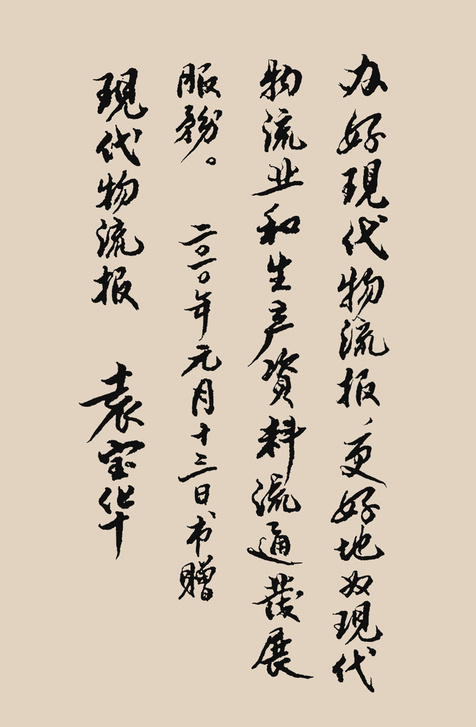 办好現代物流报，更好地为現代
物流业和生产資料流通發展
服務。 二〇一〇年元月十三日书贈
現代物流报 袁宝华